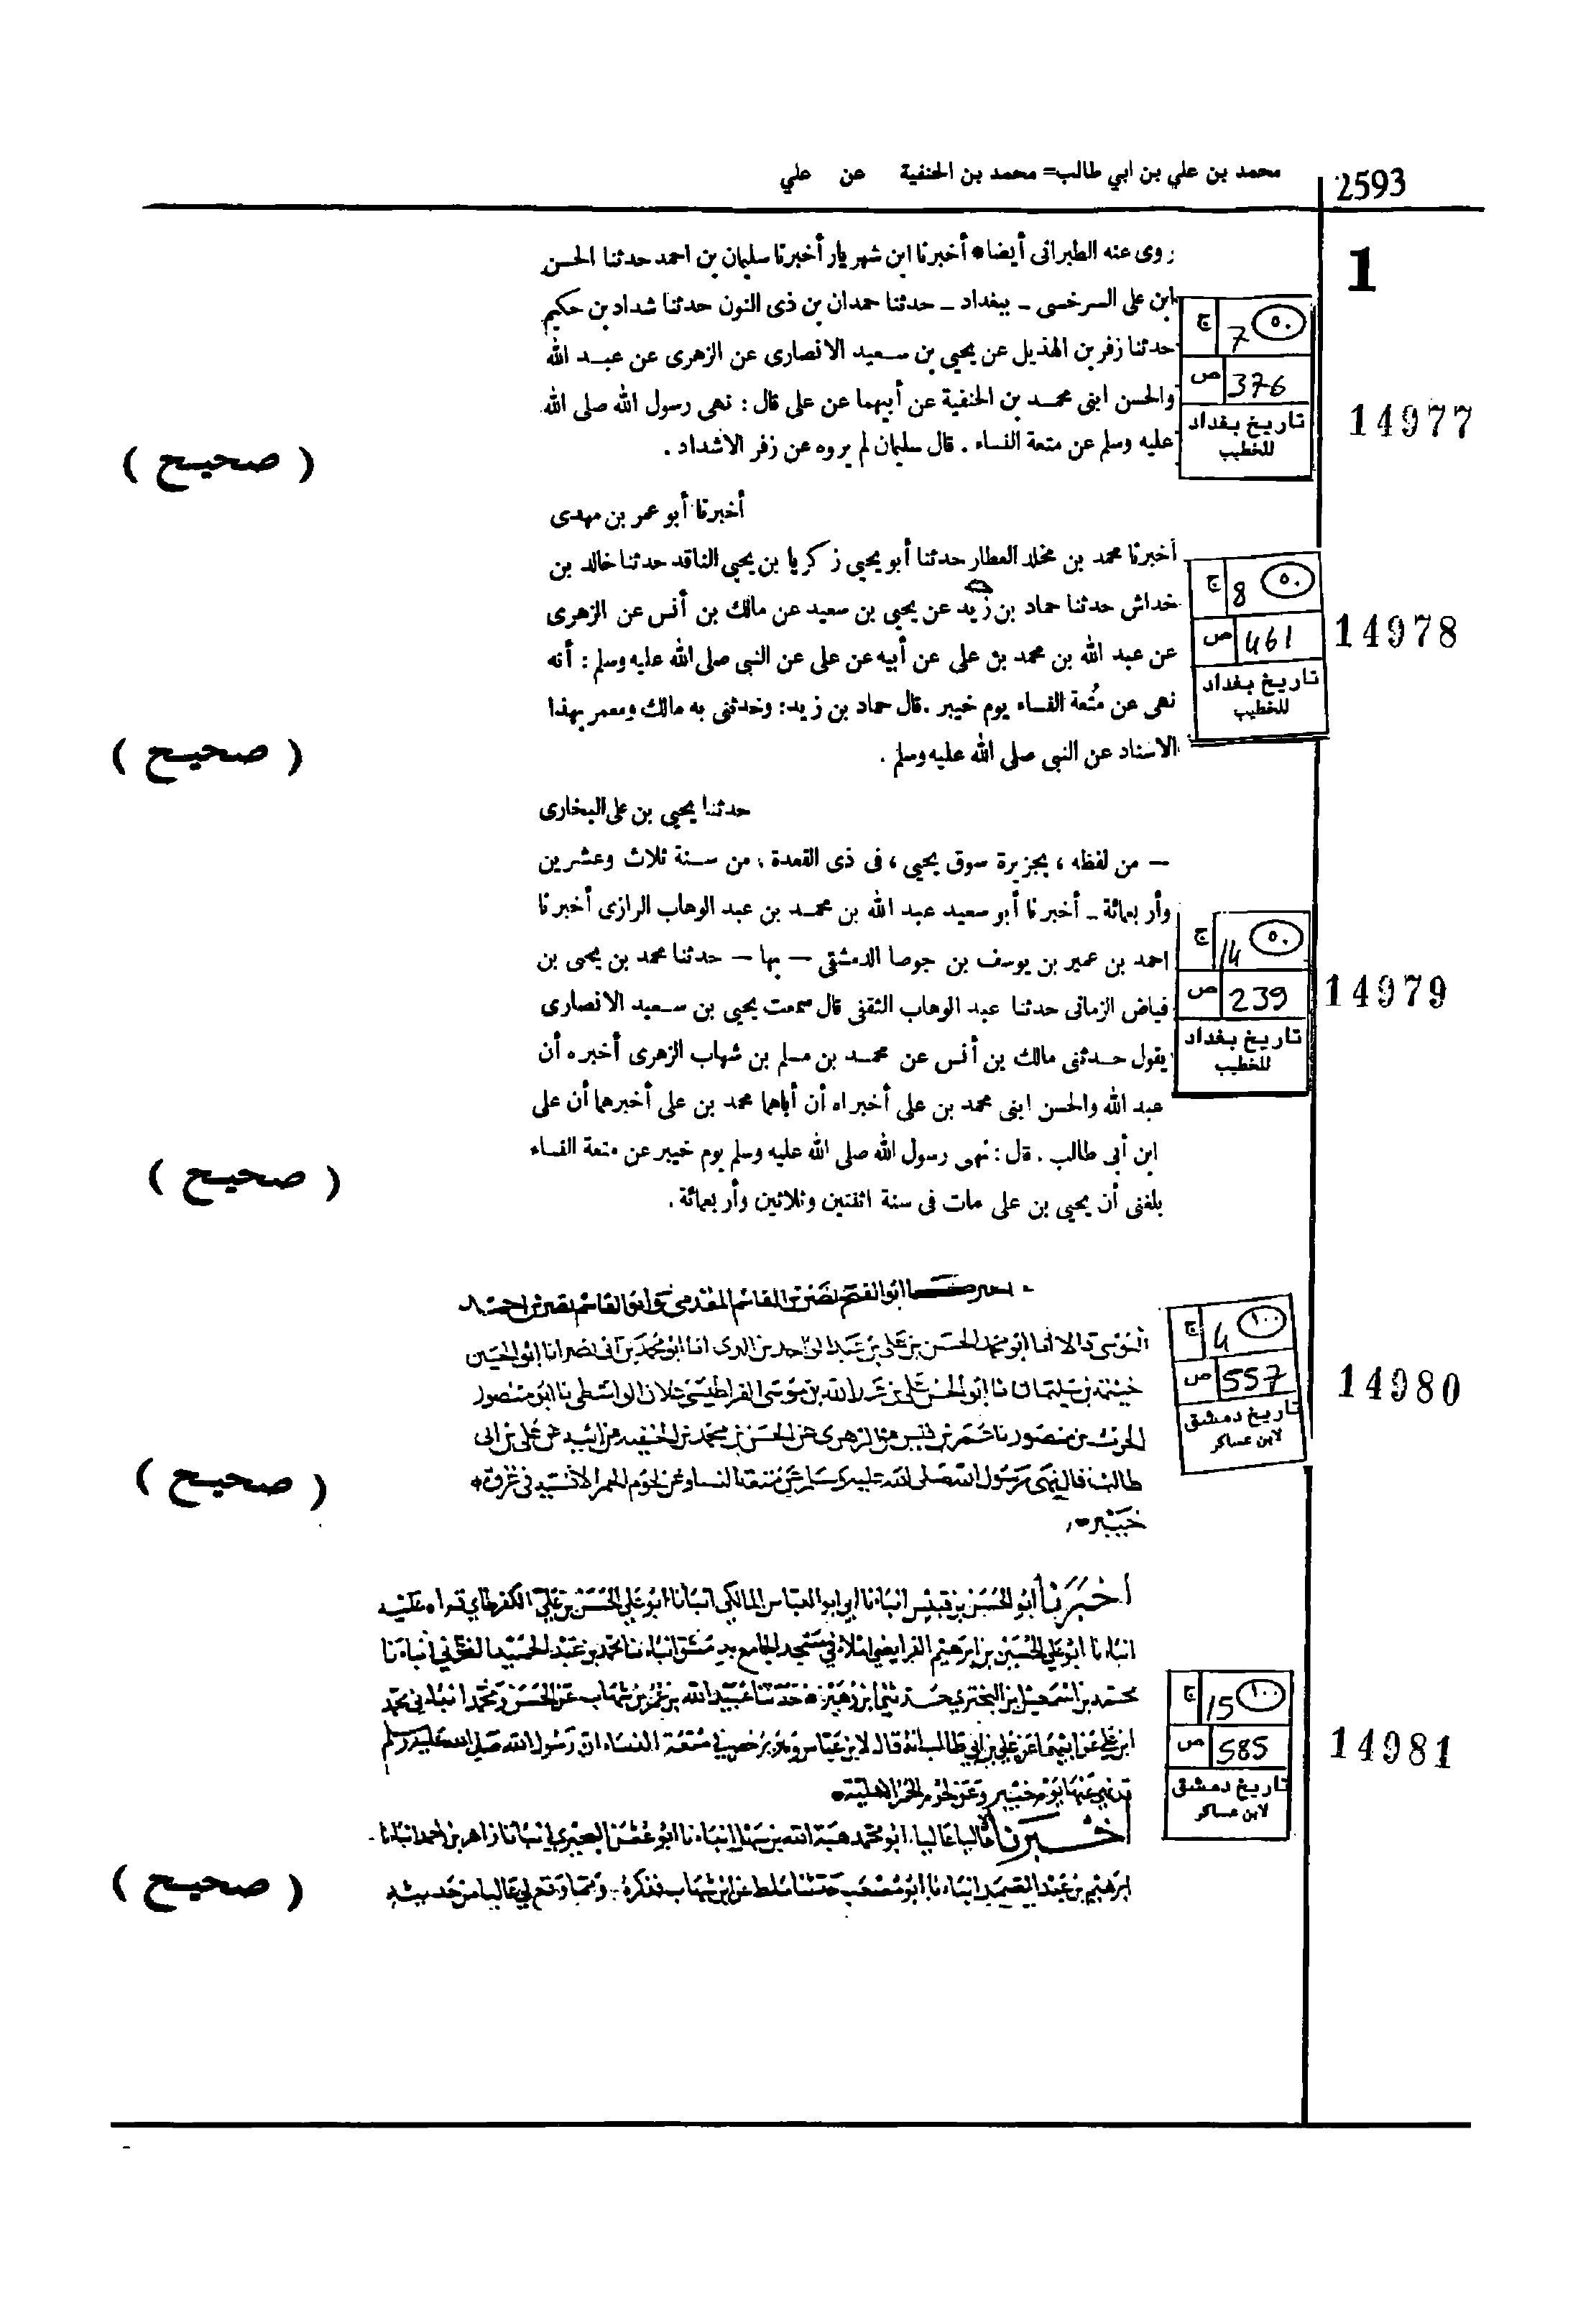 2593
محمد بن علي بن ابي طالب= محمد بن الحنفية عن علي
1
روى عنه الطبرانى أيضا * أخبرنا ابن شهريار أخبرنا سليمان بن احمد حدثنا الحسن
ابن على السرخسى ـ ببغداد ـ حدثنا حمدان بن ذى النون حدثنا شداد بن حكيم
حدثنا زفر بن الهذيل عن يحيى بن سعيد الانصارى عن الزهرى عن عبد الله
والحسن ابنى محمد بن الحنفية عن أبيهما عن على قال : نهى رسول الله صلى الله
عليه وسلم عن متعة النساء . قال سليمان لم يروه عن زفر الا شداد .
٥٠ ج 7
ص 376
تاريخ بغداد
للخطيب
14977
( صحيح )
أخبرنا أبو عمر بن مهدى
أخبرنا محمد بن مخلد العطار حدثنا أبو يحيى زكريا بن يحيى الناقد حدثنا خالد بن
خداش حدثنا حماد بن زيد عن يحيى بن سعيد عن مالك بن أنس عن الزهرى
عن عبد الله بن محمد بن على عن أبيه عن على عن النبى صلى الله عليه وسلم : أنه
نهى عن مُتعة النساء يوم خيبر . قال حماد بن زيد: وحدثنى به مالك ومعمر بهذا
الاسناد عن النبى صلى الله عليه وسلم .
٥٠ ج 8
ص 461
تاريخ بغداد
للخطيب
14978
( صحيح )
حدثنا يحيى بن على البخارى
— من لفظه ، بجزيرة سوق يحيى ، فى ذى القعدة ، من سنة ثلاث وعشرين
وأربعمائة ـ أخبرنا أبو سعيد عبد الله بن محمد بن عبد الوهاب الرازى أخبرنا
احمد بن عمير بن يوسف بن جوصا الدمشقى — بها — حدثنا محمد بن يحيى بن
فياض الزمانى حدثنا عبد الوهاب الثقفى قال سمعت يحيى بن سعيد الانصارى
يقول حدثنى مالك بن أنس عن محمد بن مسلم بن شهاب الزهرى أخبره أن
عبد الله والحسن ابنى محمد بن على أخبراه أن أباهما محمد بن على أخبرهما أن على
ابن أبى طالب . قال : نهى رسول الله صلى الله عليه وسلم يوم خيبر عن متعة النساء
بلغنى أن يحيى بن على مات فى سنة اثنتين وثلاثين وأربعمائة .
٥٠ ج 14
ص 239
تاريخ بغداد
للخطيب
14979
( صحيح )
ابو الفتح نصر بن القاسم المقدسي وابو القاسم نصر بن احمد
قالا انا ابو محمد الحسن بن علي بن عبد الواحد بن البري انا ابو محمد بن ابي نصر انا ابو الحسين
خيثمة بن سليمان نا ابو الحسن علي بن عبد الله بن موسى القراطيسي الواسطي نا ابو منصور
الحرث بن منصور نا عن الزهري عن الحسن بن محمد بن الحنفيه عن ابيه عن علي بن ابي
طالب قال نهى رسول الله صلى الله عليه وسلم عن متعة النساء وعن لحوم الحمر الانسيه في غزوة
خيبر
١٠٠ ج 4
ص 557
تاريخ دمشق
لابن عساكر
14980
( صحيح )
أخبرنا ابو الحسن بن قبيس انباء نا ابي ابو العباس المالكي انبانا ابو علي الحسن بن علي الكفرطابي قراه عليه
انباء نا ابو علي الحسين بن ابرهيم الفرايضي املاء في مسجد الجامع بدمشق انباء نا محمد بن عبد الحميد انباء نا
محمد بن اسمعيل بن البختري حدثني ابن زهير حدثنا عبيد الله بن عمر بن شهاب عن الحسن ومحمد
ابن علي عن ابيهما عن علي بن ابي طالب انه قال لابن عباس وهو يرخص في متعة النساء ان رسول الله صلى الله عليه وسلم
قد نهى عنها يوم خيبر وعن لحوم الحمر الاهلية
أخبرنا عاليا ابو محمد هبة الله بن سهل انباء نا ابو عثمن البحيري انبانا زاهر بن احمد انبانا
ابرهيم بن عبد الصمد انباء نا ابو مصعب حدثنا ملك عن ابن شهاب فذكره وقع لي عاليا من حديثه
١٠٠ ج 15
ص 585
تاريخ دمشق
لابن عساكر
14981
( صحيح )